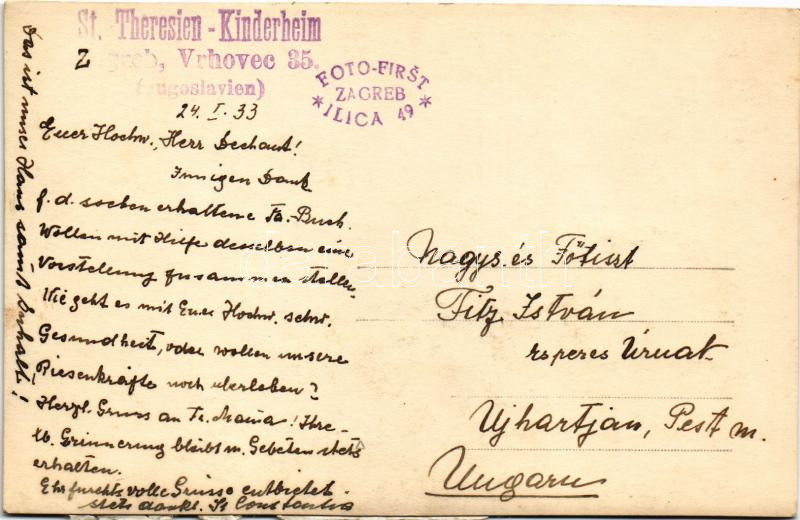 St. Theresien-Kinderheim
Zagreb, Vrhovec 35.
(Jugoslavien)
FOTO-FIRŠT
ZAGREB
ILICA 49
24. I. 33
Euer Hochw., Herr Dechant!
Innigen Dank
f. d. soeben erhaltene Th.-Buch.
Wollen mit Hilfe desselben eine
Vorstellung zusammenstellen.
Wie geht es mit Euer Hochw. schw.
Gesundheit, oder wollen unsere
Riesenkräfte noch überleben?
Herzl. Gruss an Fr. Maria! Ihre
lb. Erinnerung bleibt m. Gebeten stets
erhalten.
Ehrfurchtsvolle Grüsse entbietet
stets dankb. Sr Constantia
Das ist unser Haus samt Inhalt!
Nagys. és Főtiszt
Fitz István
esperes Úrnak
Ujhartján, Pest m.
Ungarn